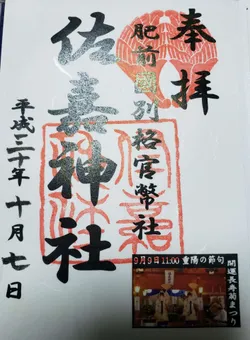 奉拝
肥前國別格官幣社
佐嘉神社
平成三十年十月七日
9月9日11:00 重陽の節句
開運長寿菊まつり